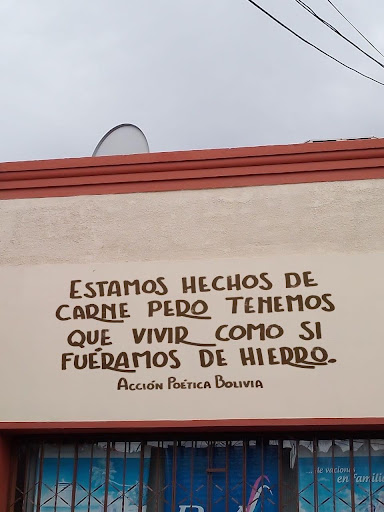 ESTAMOS HECHOS DE
CARNE PERO TENEMOS
QUE VIVIR COMO SI
FUÉRAMOS DE HIERRO.
ACCIÓN POÉTICA BOLIVIA
... de vacaciones
en familia